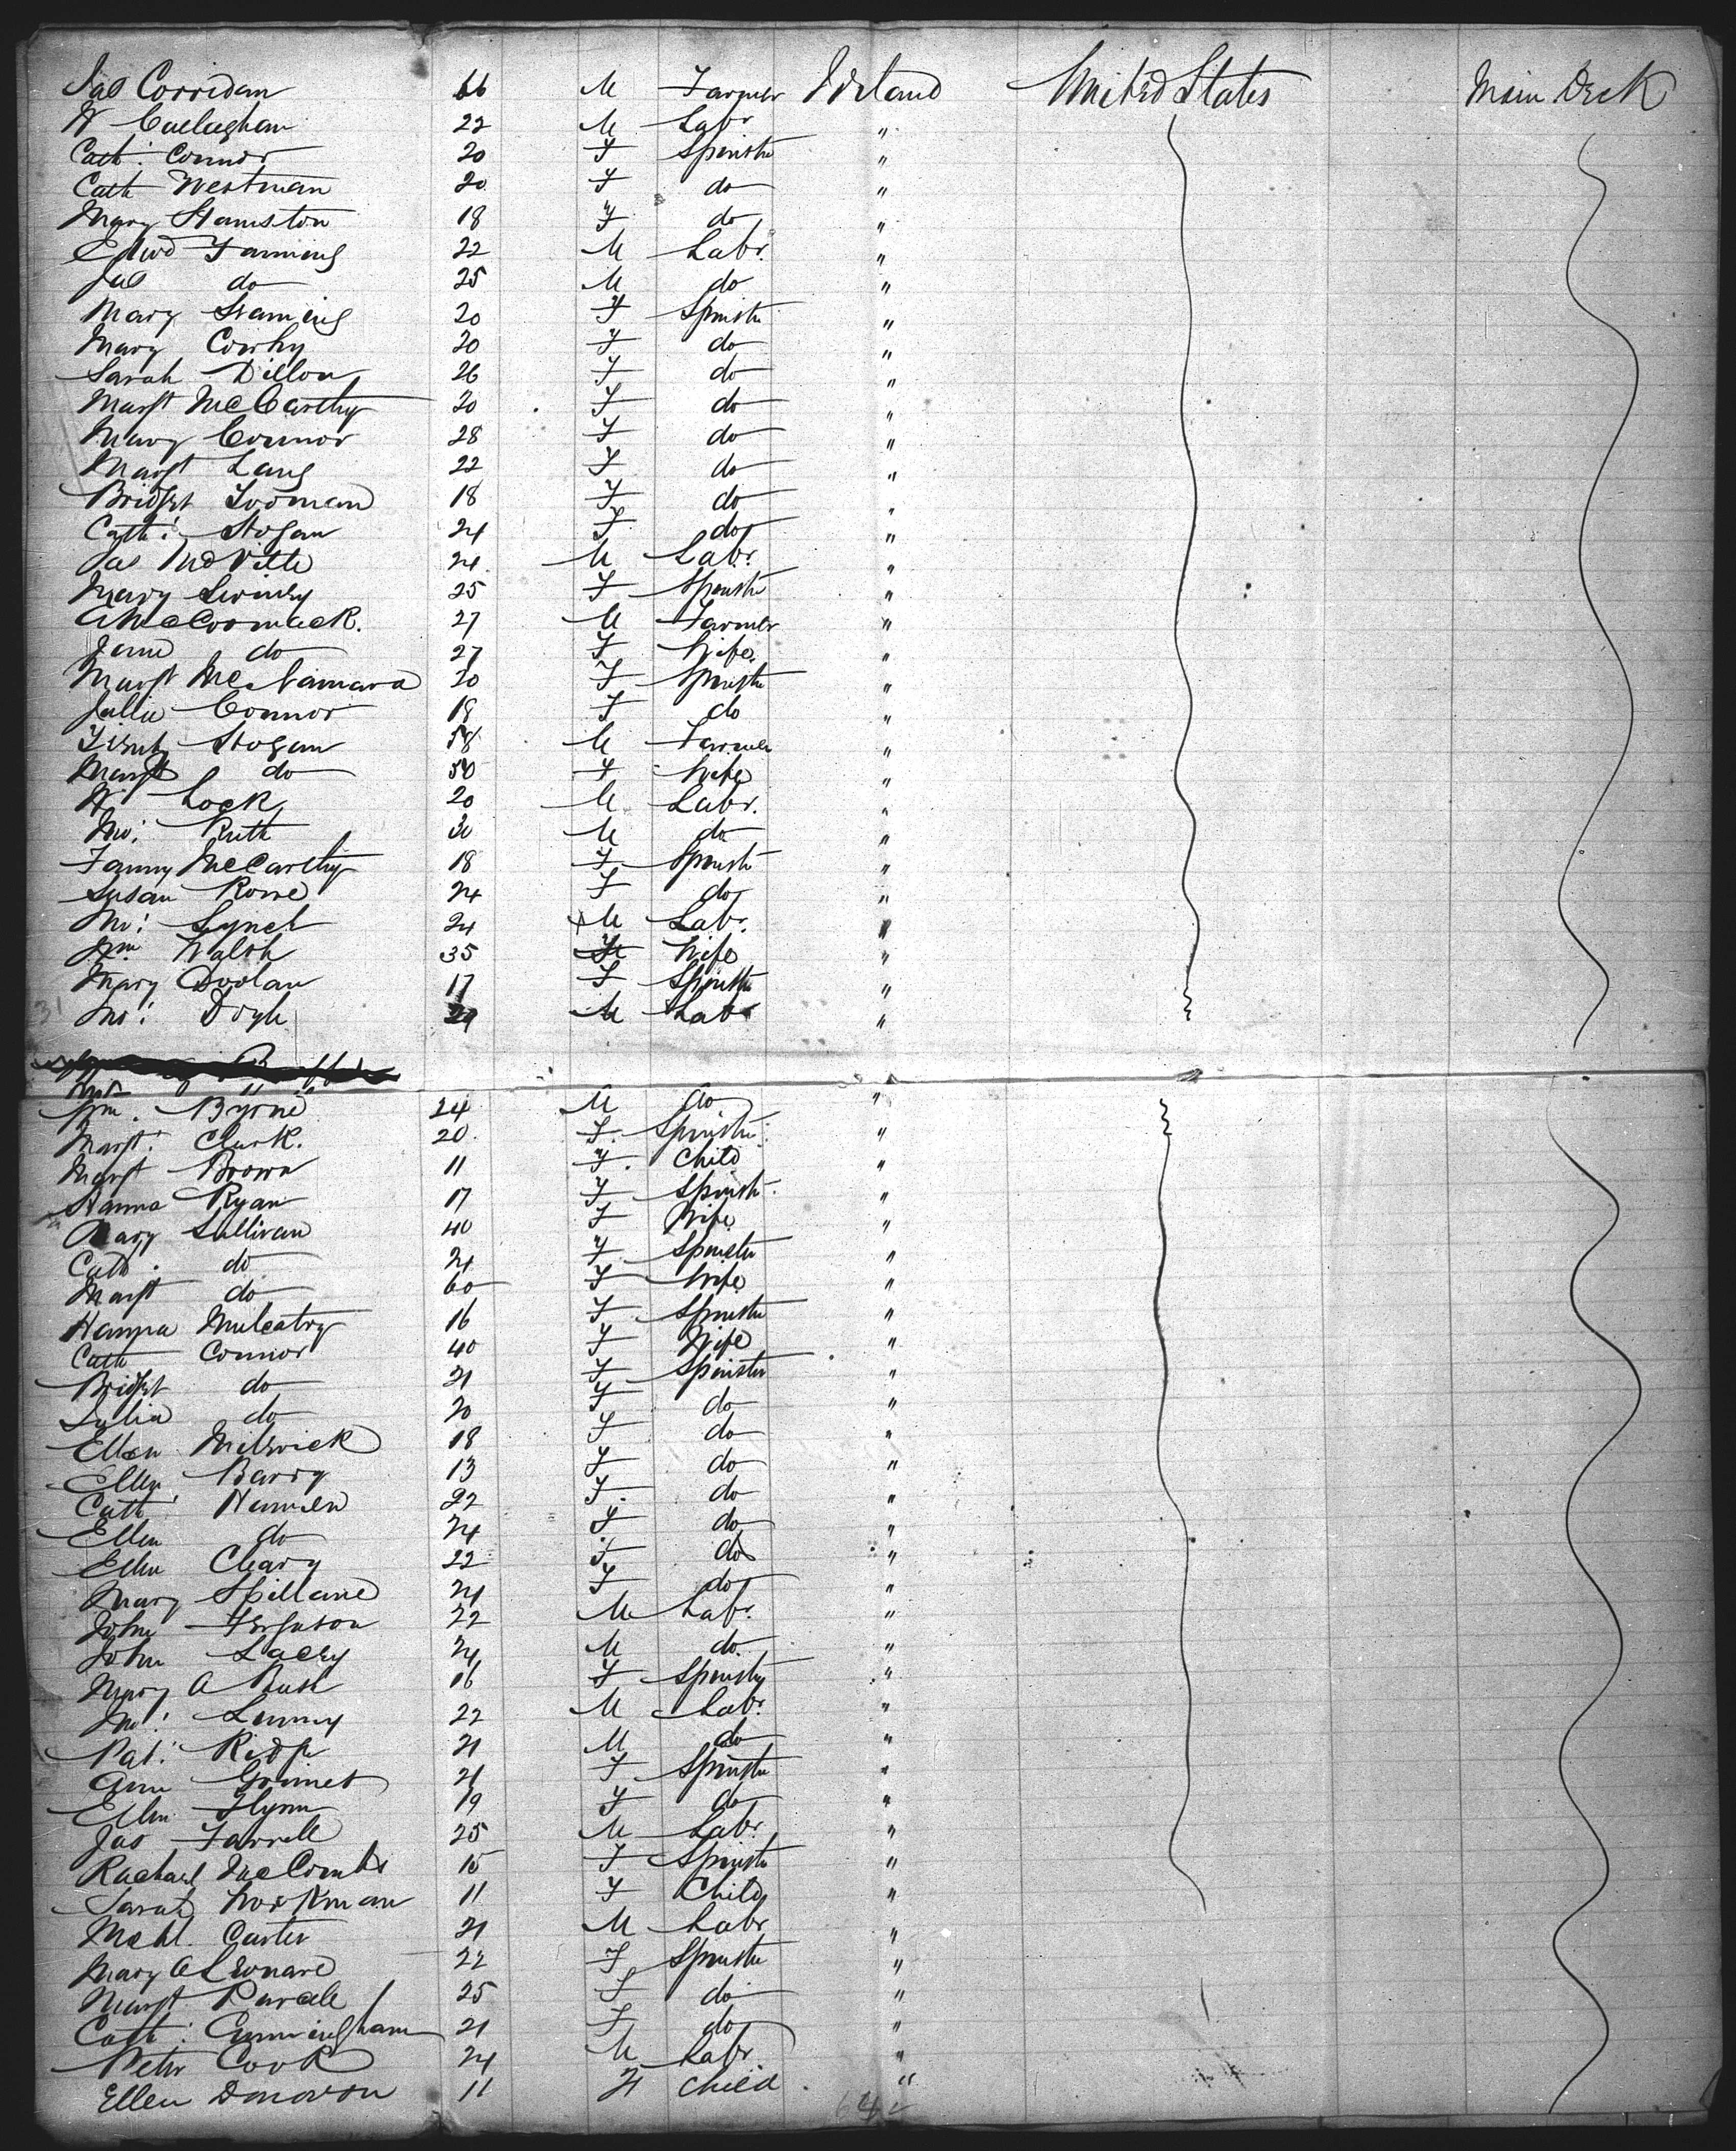 Jas Corridan 66 M Farmer Ireland United States Main Deck
W Callaghan 22 M Labr "
Cath: Connor 20 F Spinstr "
Cath Westman 20 F do "
Mary Hamston 18 F do "
Edwd Fanning 22 M Labr. "
Jas do 25 M do "
Mary Fanning 20 F Spinstr "
Mary Corrhy 20 F do "
Sarah Dillon 26 F do "
Margt McCarthy 20 F do "
Mary Connor 28 F do "
Margt Lang 22 F do "
Bridget Looman 18 F do "
Cath: Hogan 24 F do "
Jas 24 M Labr. "
Mary Swiney 25 F Spinstr "
A McCormack. 27 M Farmer "
Jane do 27 F Wife "
Margt McNamara 20 F Spinstr "
Julia Connor 18 F do "
Hogan 58 M Farmer "
Margt do 50 F Wife "
W Lock 20 M Labr. "
Jno: Ruth 30 M do "
Fanny McCarthy 18 F Spinstr "
Susan Rowe 24 F do "
Jno: Lynch 24 M Labr. "
Wm Walsh 35 Wife "
Mary Doolan 17 F Spinstr "
Jno: Doyle M Labr "
Wm. Byrne 24 M do "
Margt: Clark. 20. F. Spinstr. "
Margt Brown 11 F. Child "
Hanna Ryan 17 F Spinstr. "
Mary Sullivan 40 F Wife "
Cath. do 24 F Spinstr "
Margt do 60 F Wife "
Hanna Mulcatry 16 F Spinstr "
Cath Connor 40 F Wife "
Bridget do 21 F Spinster "
Julia do 20 F do "
Ellen 18 F do "
Ellen Barry 13 F do "
Cath 22 F. do "
Ellen do 24 F do "
Ellen Cleary 22 F do "
Mary Spillane 21 F do "
John Ferguson 22 M Labr. "
John Lacey 24 M do. "
Mary A Rush 16 F Spinstr "
Jno: Lenny 22 M Labr. "
Pat: Ridge 21 M do "
Ann Grimes 21 F Spinstr "
Ellen Flynn 19 F do "
Jas Farrell 25 M Labr. "
Rachael McCombs 15 F Spinstr "
Sarah Workman 11 F Child "
Mchl. Carter 21 M Labr "
Mary A Leonard 22 F Spinstr "
Margt Purcell 25 F do "
Cath: Cunningham 21 F do "
Peter Cook 24 M Labr "
Ellen Donovon 11 F Child "